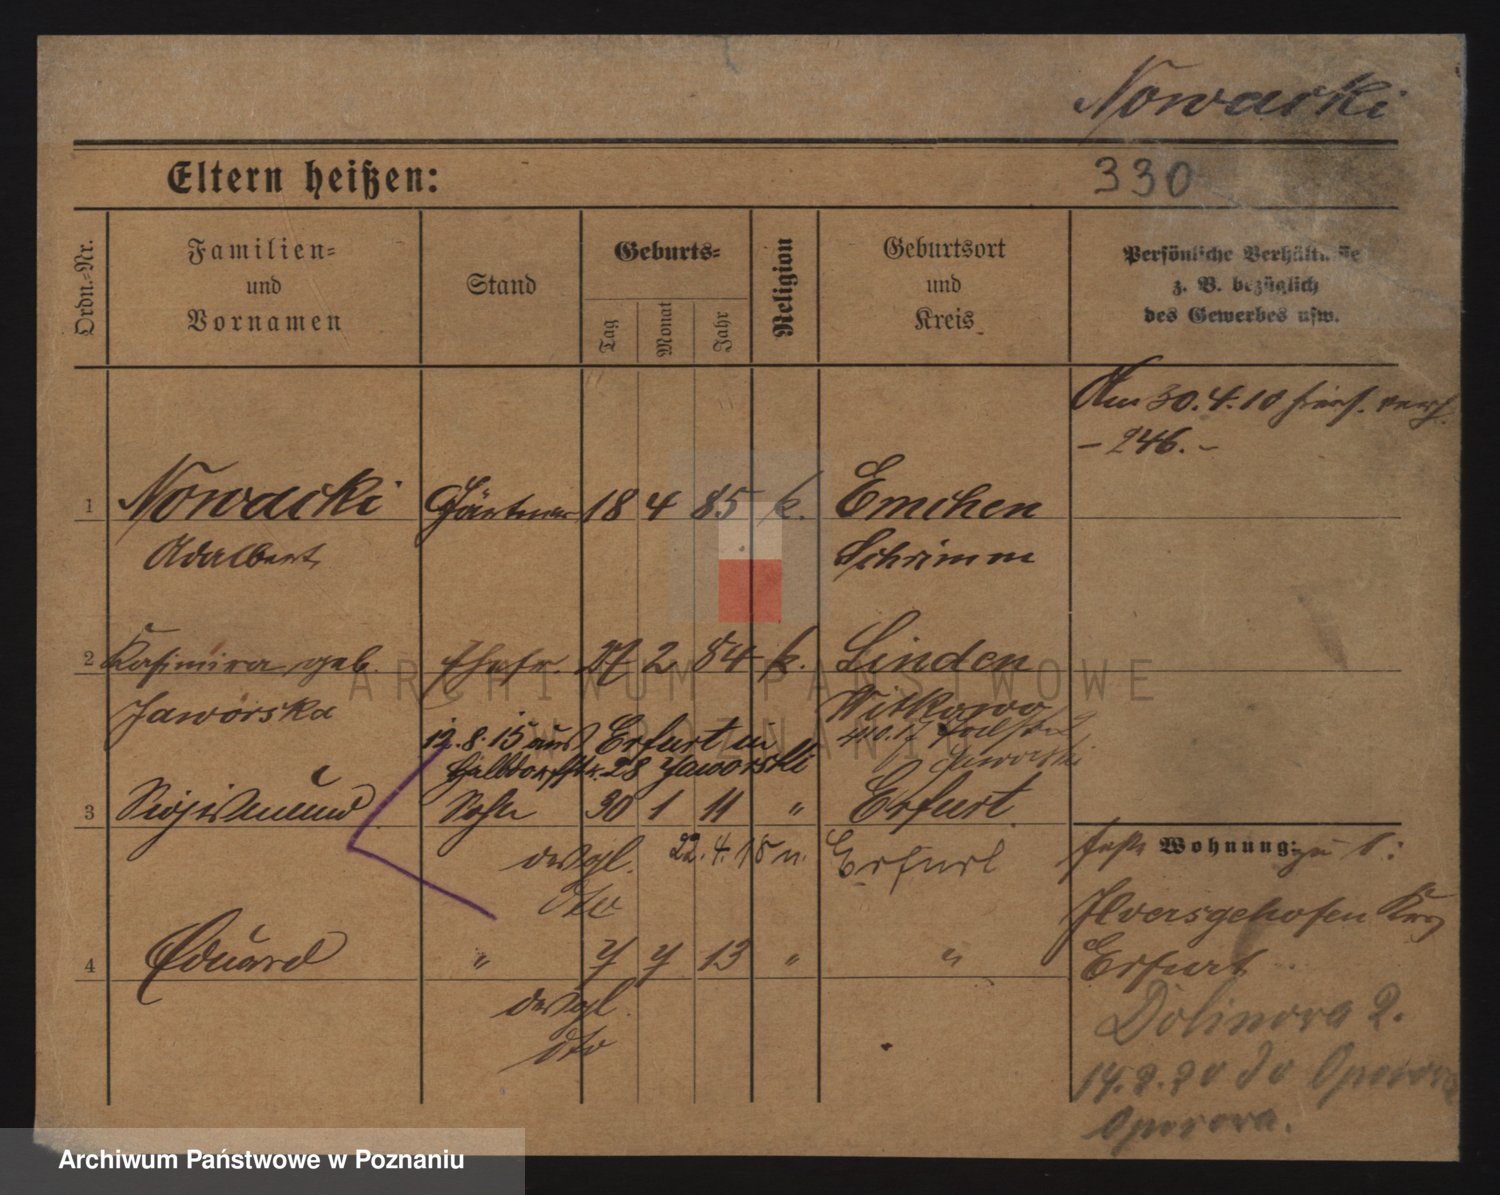 Nowacki
Eltern heißen:
330
Ordn.-Nr.
Familien-
und
Vornamen
Stand
Geburts-
Tag
Monat
Jahr
Religion
Geburtsort
und
Kreis
Persönliche Verhältnisse
z. B. bezüglich
des Gewerbes usw.
Am 30.4.10
– 246. –
1 Nowacki Gärtner 18 4 85 k. Emchen
Adalbert Schrimm
2 Kasimira geb. Ehefr. 27 2 84 k. Linden
Jaworska Witkowo
12.8.15 aus Erfurt
Halbdorfstr. 28 Jaworski
3 Sigismund Sohn 30 1 11 " Erfurt
Wohnung: zu 1:
desgl. 22.4.18 n. Erfurt
dto
Ilversgehofen
4 Eduard " 7 7 13 " "
Erfurt
desgl.
dto
Dolinora 2.
14.2.20
Oporora.
ARCHIWUM PAŃSTWOWE
W POZNANIU
Archiwum Państwowe w Poznaniu